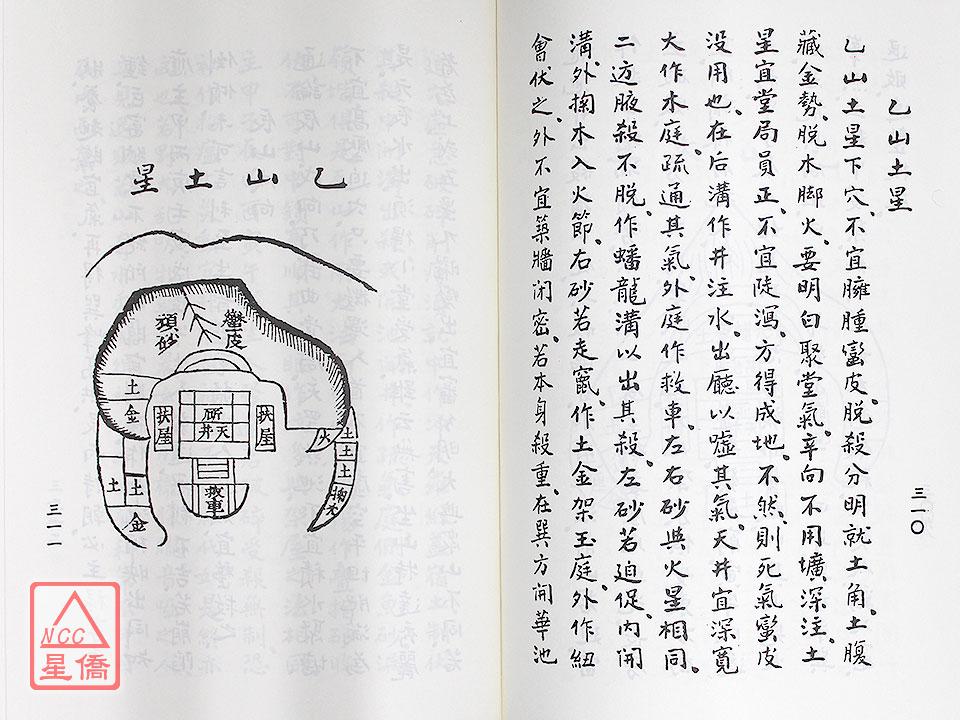 乙山土星
乙山土星下穴、不宜臃腫蠻皮、脱殺分明就土角、土腹
藏金勢、脱水脚火、要明白聚堂氣、辛向不用壙深注、土
星宜堂局員正、不宜陡瀉、方得成地、不然、則死氣蠻皮
没用也、在后溝作井注水、出廳以噓其氣、天井宜深寬
大作木庭、疏通其氣、外庭作救車、左右砂與火星相同、
二边腋殺不脱、作蟠龍溝以出其殺、左砂若迫促、内開
溝、外掬木入火節、右砂若走竄、作土金架玉庭、外作紐
會伏之、外不宜築牆閉密、若本身殺重、在巽方開華池
三一〇
星土山乙
蠻皮
頑砂
土
金
土
土
金
扶屋
天井
扶屋
救車
火
土
土
土
掬木
三一一
NCC
星僑